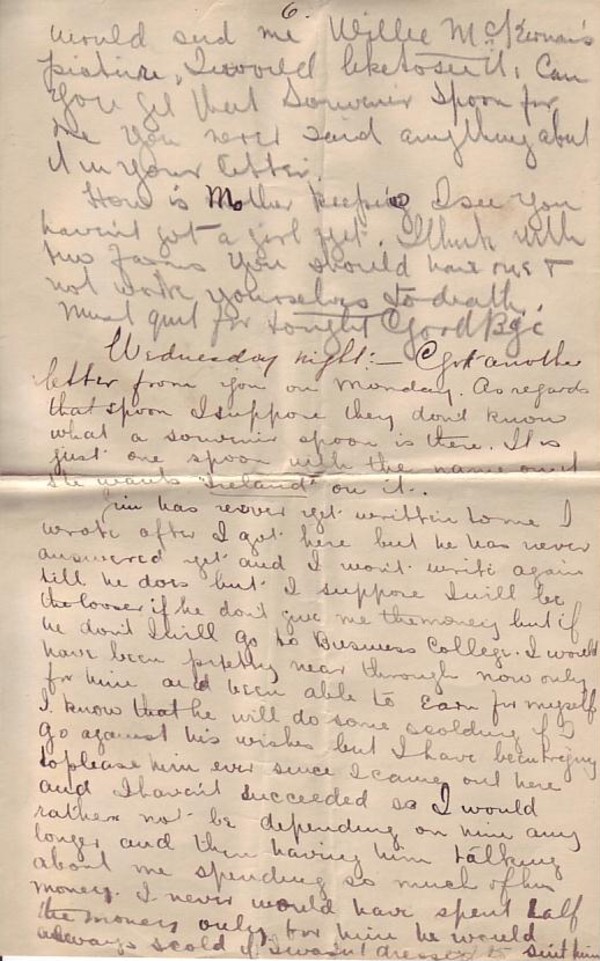 6.
would send me Willie McKernan's
picture, I would like to see it. Can
you get that Souvenir Spoon for
me you never said anything about
it in your letter.
How is Mother keeping I see you
haven't got a girl yet. I think with
two farms you should have one &
not work yourselves to death.
Must quit for tonight Good Bye
Wednesday night:— I got another
letter from you on Monday. As regards
that spoon I suppose they don't know
what a souvenir spoon is there. It is
just one spoon with the name on it
She wants "Ireland" on it.
Jim has never yet written to me I
wrote after I got here but he has never
answered yet and I won't write again
till he does but I suppose I will be
the looser if he don't give me the money but if
he don't I will go to Business College. I would
have been pretty near through now only
for him and been able to earn for myself
I know that he will do some scolding if I
go against his wishes but I have been trying
to please him ever since I came out here
and I haven't succeeded so I would
rather not be depending on him any
longer and then having him talking
about me spending so much of his
money. I never would have spent half
the money only for him he would
always scold if I wasn't dressed to suit him